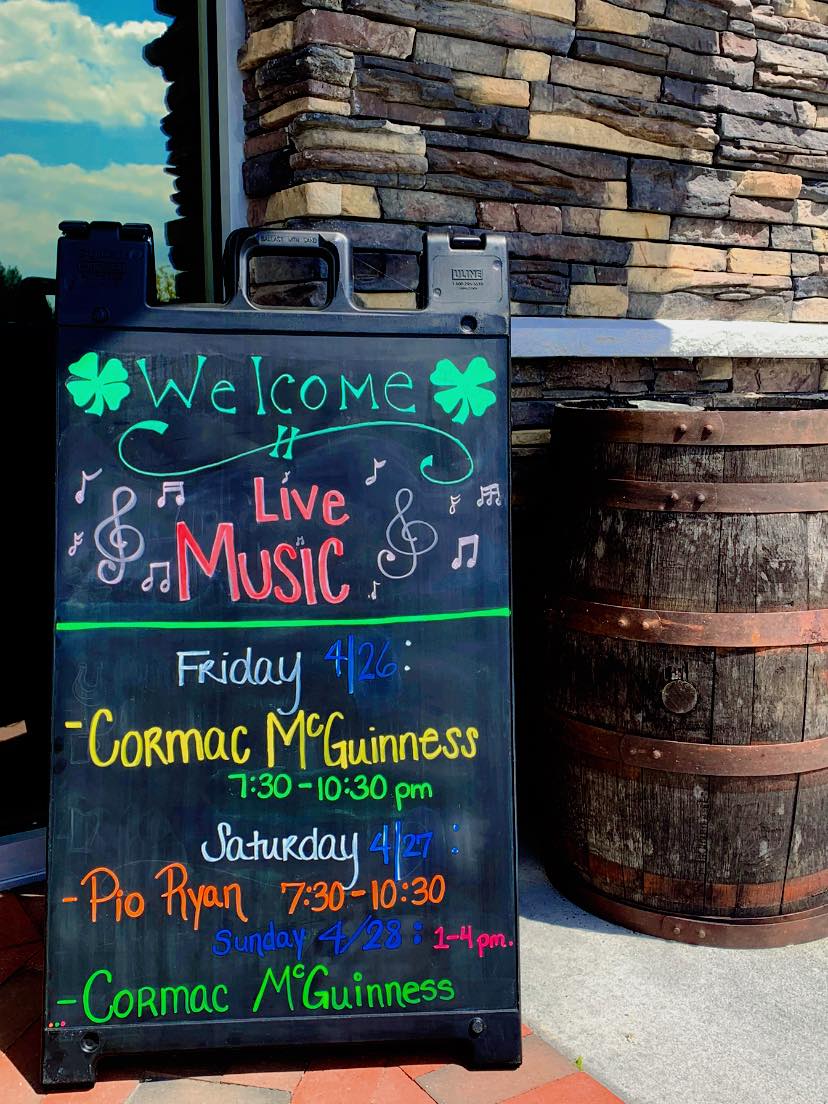 BALLAST WITH SAND
ULINE
Welcome
Live
Music
Friday 4/26:
-Cormac McGuinness
7:30-10:30 pm
Saturday 4/27:
-Pio Ryan 7:30-10:30
Sunday 4/28: 1-4 pm.
-Cormac McGuinness